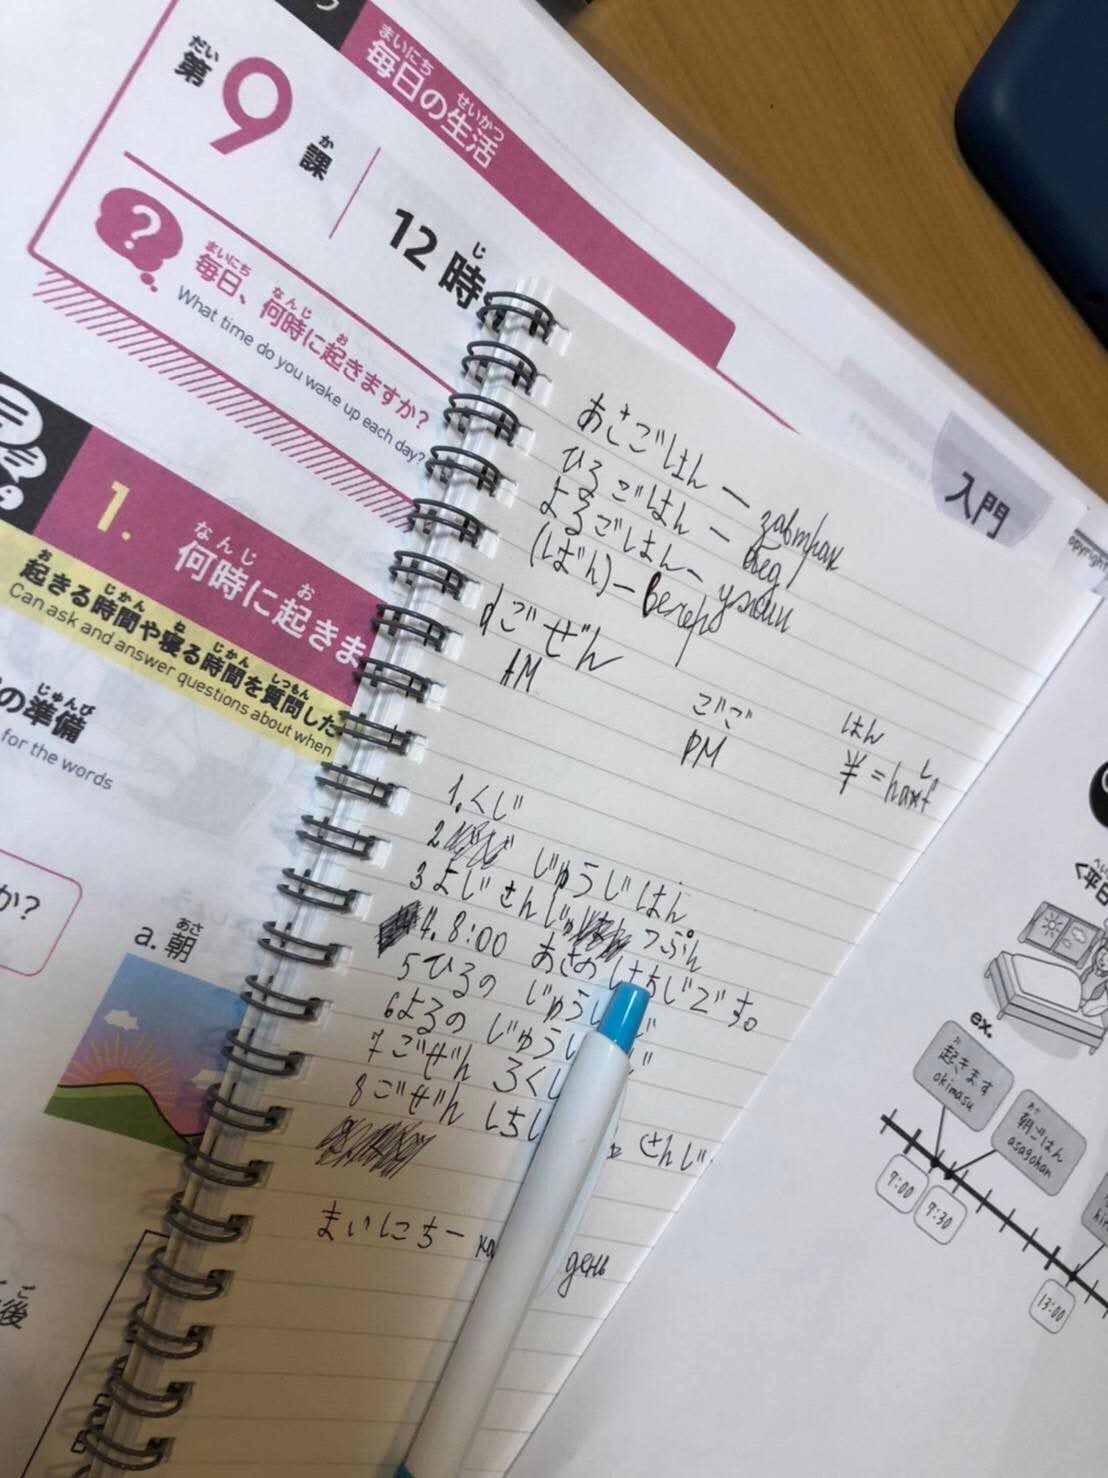 だい
第9課
か
まいにち せいかつ
毎日の生活
じ
12時
?
まいにち なんじ お
毎日、何時に起きますか?
What time do you wake up each day?
入門
なんじ お
1. 何時に起きま
お じかん ね じかん しつもん
起きる時間や寝る時間を質問した
Can ask and answer questions about when
じゅんび
の準備
for the words
か?
あさ
a. 朝
ご
後
あさごはん — завтрак
ひるごはん — обед
よるごはん - ужин
(ばん) — вечер
ごぜん
AM
ごご
PM
はん
半 = half
1. くじ
2 じゅうじはん
3 よじさんじゅ っぷん
4. 8:00 あさの はちじです。
5 ひるの じゅう
6 よるの じゅう
7 ごぜん ろく
8 ごぜん しち さんじ
まいにち — день
ex.
お
起きます
okimasu
あさ
朝ごはん
asagohan
7:00
7:30
13:00